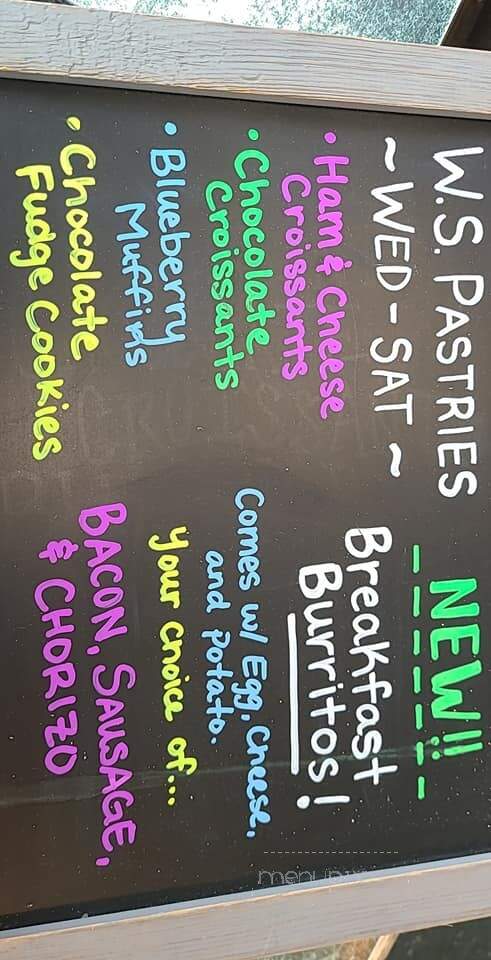 W.S. PASTRIES
~WED-SAT~
• Ham & Cheese
Croissants
• Chocolate
Croissants
• Blueberry
Muffins
• Chocolate
Fudge Cookies
NEW!!
Breakfast
Burritos!
Comes w/ Egg, Cheese,
and potato.
your choice of...
BACON, SAUSAGE,
& CHORIZO